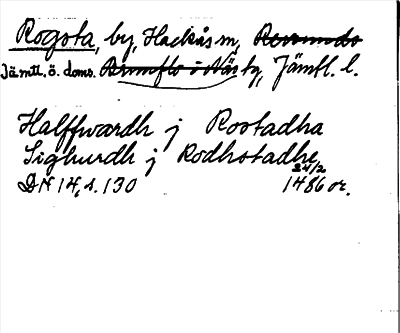 Rogsta, by, Hackås sn, Revsunds
Jämtl. ö. doms. Brunflo i Näs tg, Jämtl. l.
Halffwardh j Rostadha
Sighurdh j Rodhstadhe
24/2
DN 14, s. 130 1486 or.